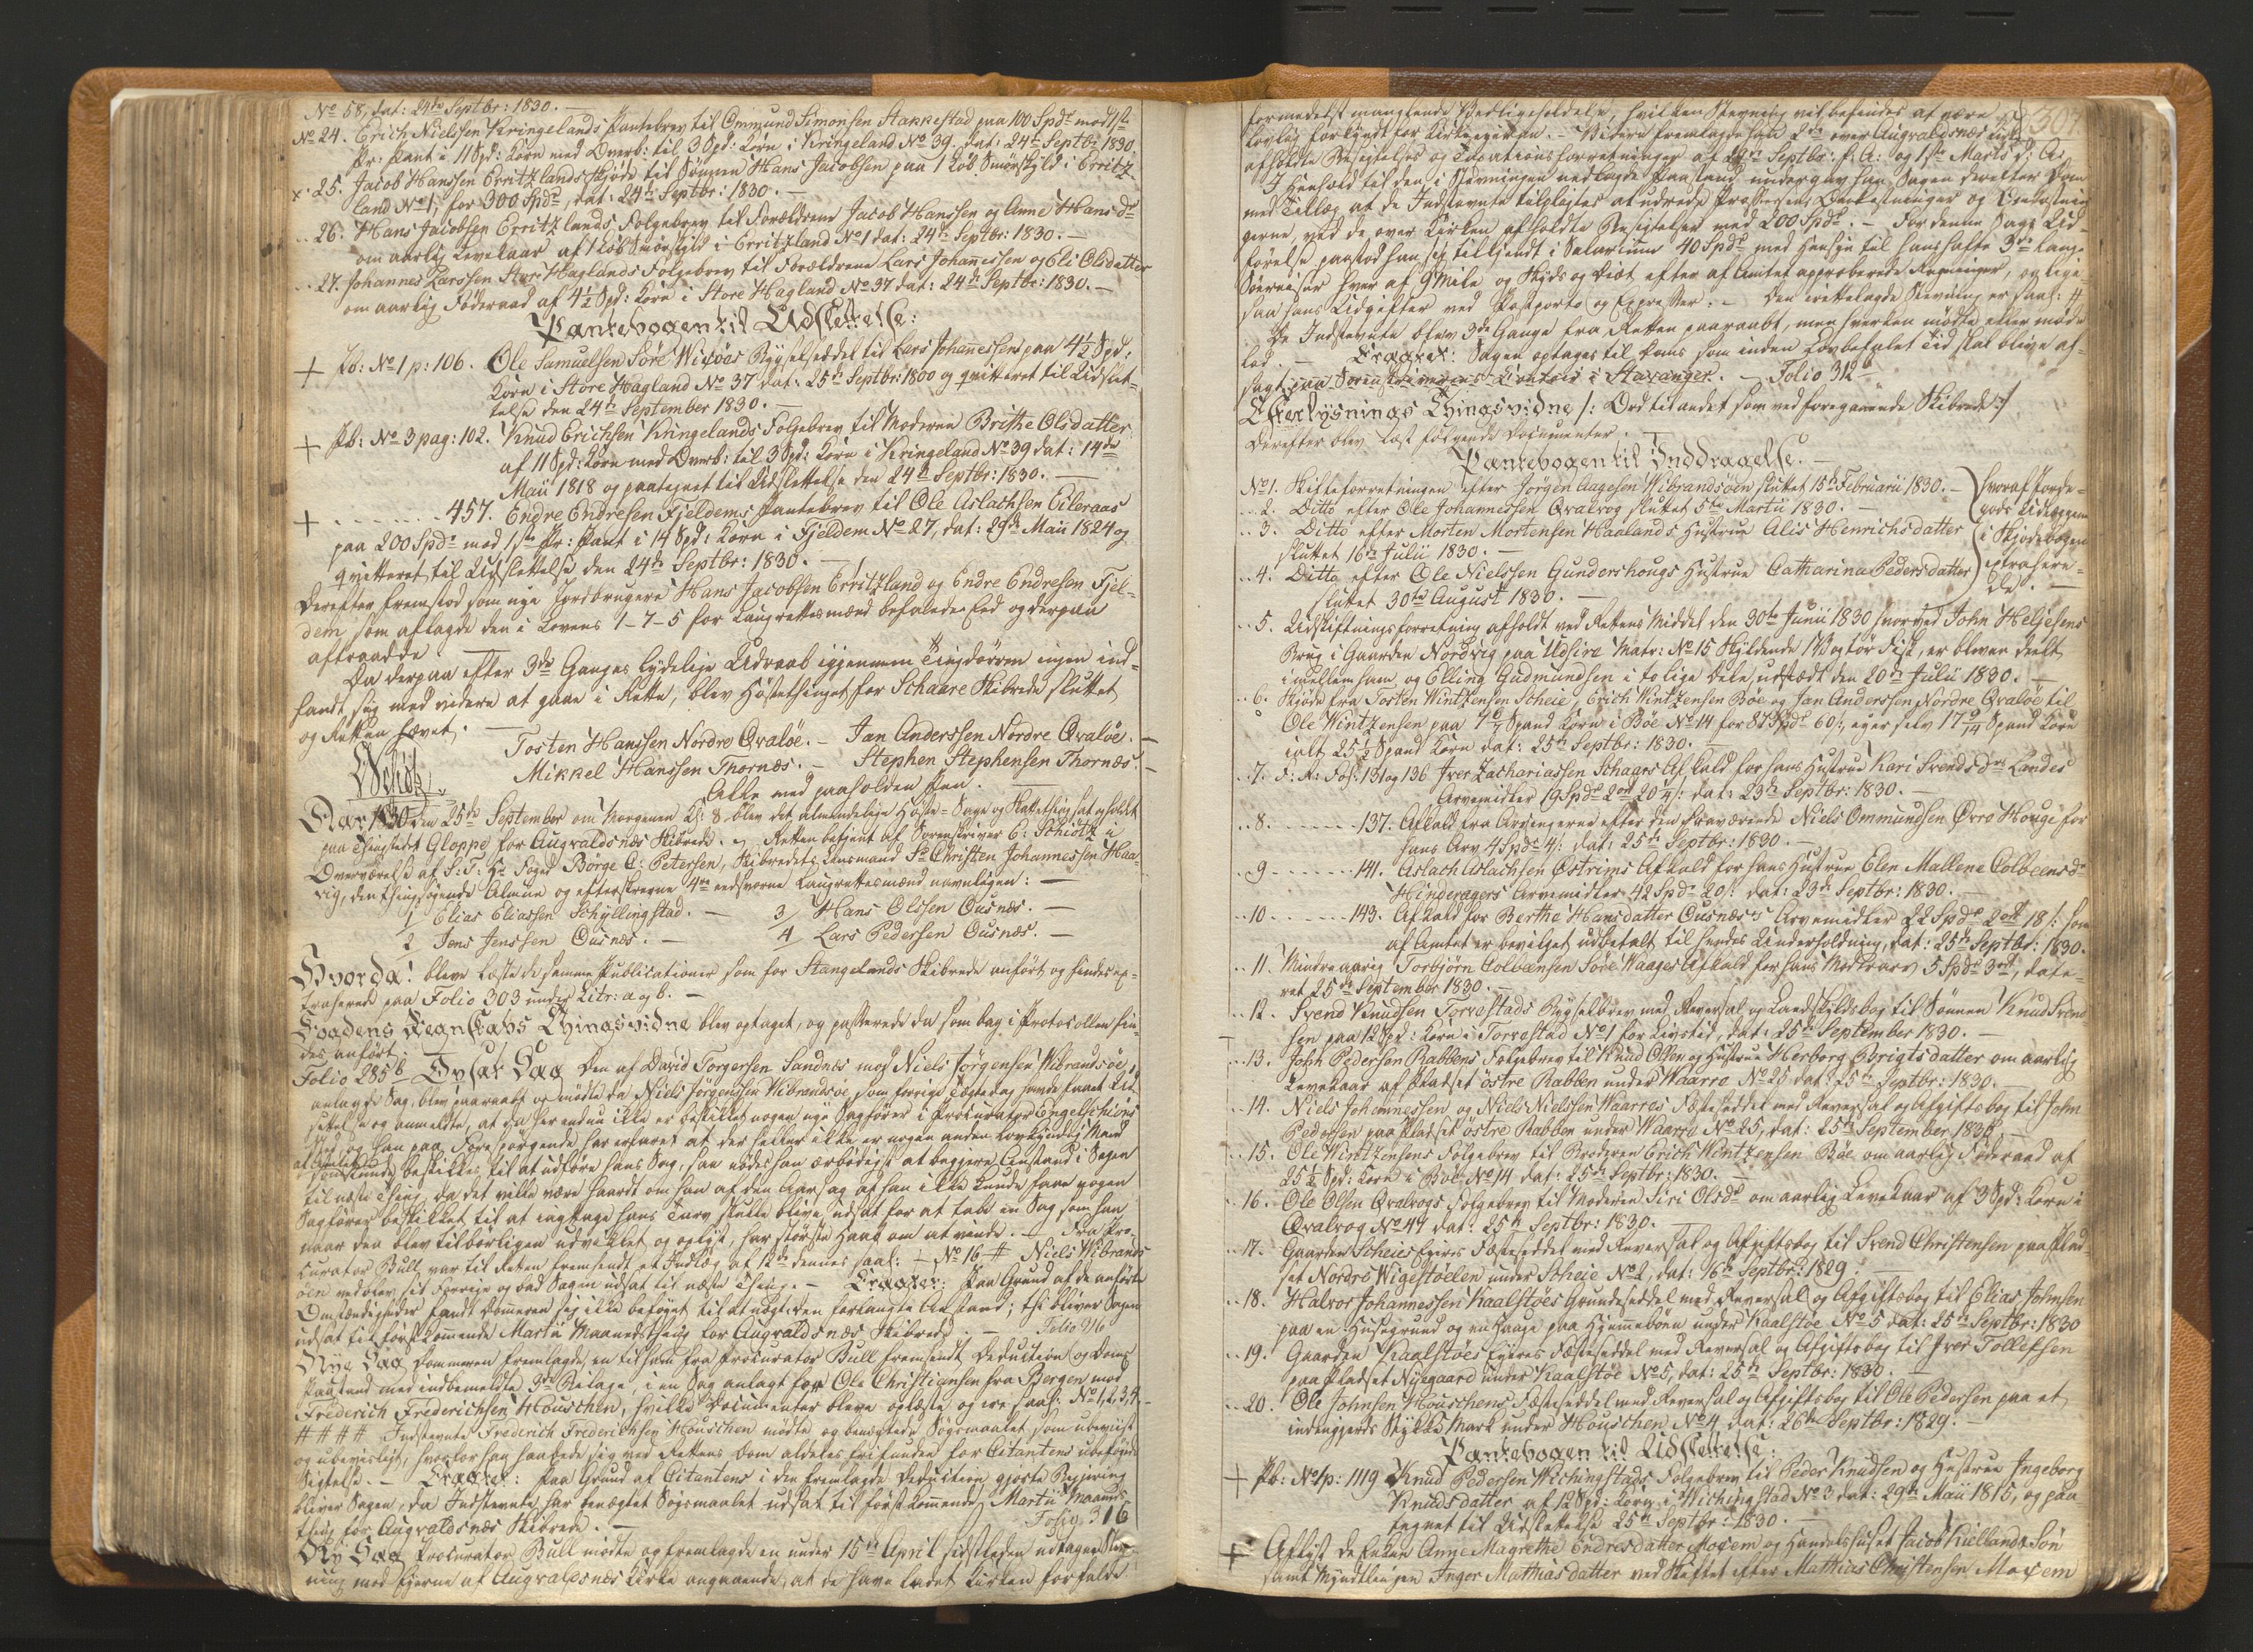 No 58, dat: 24de Septbr: 1830. —
No 24. Erich Nielssen Kringelands Pantebrev til Ommund Simonsen Stakkestad paa 100 Spdr mod 1ste
Pr: Pant i 11 Spd: Korn med Overb: til 3 Spd: Korn i Kringeland No 39. dat: 24de Septbr 1830.
x 25. Jacob Hanssen Erritzlands Skjøde til Sønnen Hans Jacobsen paa 1 Løb Smørskyld i Erritz-
land No 1, for 300 Spdr, dat: 24de Septbr: 1830. —
.. 26. Hans Jacobsen Erritzlands Følgebrev til Forældrene Jacob Hanssen og Anne Hansdr
om aarlig Levekaar af 1 Løb Smørskyld i Erritzland No 1 dat: 24de Septbr: 1830. —
.. 27. Johannes Larssen Store Haglands Følgebrev til Forældrene Lars Johannessen og Eli Olsdatter
om aarlig Føderaad af 4½ Spd: Korn i Store Hagland No 37 dat: 24de Septbr: 1830. —
Pantebogen til Udslettelse:
+ Pb: No 1 p: 106. Ole Samuelsen Søre Wigøes Bygselseddel til Lars Johannessen paa 4½ Spd:
Korn i Store Hagland No 37 dat: 25de Septbr: 1800 og qvitteret til Udslet-
telse den 24de September 1830. —
+ Pb: No 3 pag: 102. Knud Erichsen Kringelands Følgebrev til Moderen Brithe Olsdatter
af 11 Spd: Korn med Overb: til 3 Spd: Korn i Kringeland No 39 dat: 14de
Maii 1818 og paategnet til Udslettelse den 24de Septbr: 1830. —
+ . . . . . . 457. Endre Endresen Fjeldems Pantebrev til Ole Aslachsen Eileraas
paa 200 Spdr mod 1ste Pr: Pant i 14 Spd: Korn i Fjeldem No 27, dat: 29de Maii 1824 og
qvitteret til Udslettelse den 24de Septbr: 1830. —
Derefter fremstod som nye Jordbrugere Hans Jacobsen Erritzland og Endre Endresen Fjel-
dem, som aflagde den i Lovens 1-7-5 for Laugrettesmænd befalede Eed og derpaa
aftraadde
Da derpaa efter 3de Ganges lydelige Udraab igjennem Tingdørren ingen ind-
fandt sig med videre at gaae i Rette, blev Høstethinget for Schaare Skibrede sluttet
og Retten hævet. —
Tosten Hanssen Nordre Qvaløe. — Jan Anderssen Nordre Qvaløe. —
Mikkel Hanssen Thornæs. — Stephen Stephensen Thornæs. —
Schiøtz
Alle med paaholden Pen.
Aar 1830 den 25de September om Morgenen Kl: 8 blev det almindelige Høste- Sage og Skattething sat og holdt
paa Thingstedet Gloppe for Augvaldsnæs Skibrede. — Retten betjent af Sorenskriver C: Schiøtz i
Overværelse af S: T: Hr Foged Børge A: Petersen, Skibredets Lensmand Sr Christen Johannessen Haa-
vig, den thingsøgende Almue og efterskrevne 4re eedsvorne Laugrettesmænd navnligen: —
1 Elias Eliassen Schyllingstad. — 3 Hans Olssen Ousnæs. —
2 Jens Jenssen Ousnæs. — 4 Lars Pedersen Ousnæs. —
Hvorda! bleve læste de samme Publicationer som for Stangelands Skibrede anført og findes ex-
traherede paa Folio 303 under Litr: a og b. —
Fogdens Regnskabs Thingsvidne blev optaget, og passerede da som bag i Protocollen fin-
des anført. —
Folio 285b Opsat Sag Den af David Torgersen Sandnæs mod Niels Jørgensen Wibrandsøe
anlagde Sag, blev paaraabt og mødte da Niels Jørgensen Wibrandsøe, som forrige Tægtedag havde faaet Ud-
settelse og anmeldte, at da her endnu ikke er beskikket nogen nye Sagfører i Procurator Engelschiøns
Sted, og han paa Forespørgende har erfaret at der heller ikke er nogen anden lovkyndig Mand
af Amtet kunde beskikkes til at udføre hans Sag, saa nødes han ærbødigst at begjere Anstand i Sagen
til næste Thing, da det ville være haardt om han af den Aarsag at han ikke kunde faae nogen
Sagfører beskikket til at iagttage hans Tarv skulle blive udsat for at tabe en Sag som han
naar den blev tilbørligen udviklet og oplyst, har største Haab om at vinde. — Fra Pro-
curator Bull var til Retten fremsendt et Indlæg af 12te dennes saal: — No 16 # Niels Wibrands-
øen vedblev sit Forrige og bad Sagen udsat til næste Thing. — Eragtet: Paa Grund af de anførte
Omstændigheder fandt Dommeren sig ikke beføiet til at nægte den forlangte Anstand; thi bliver Sagen
udsat til førstkommende Martii Maanedsthing for Augvaldsnæs Skibrede. — Folio 316
Nye Sag Dommeren fremlagde en til ham fra Procurator Bull fremsendt Deduction og Doms
Paastand med indbemeldte 3de Bilage, i en Sag anlagt for Ole Christiansen fra Bergen mod
Frederich Frederichsen Houschen, hvilke Documenter bleve oplæste og ere saal: No 1, 2, 3, 4,
# # # # Indstevnte Frederich Frederichsen Houschen mødte og benægtede Søgsmaalet som ubeviist
og ubevisligt, hvorfor han haabede sig ved Rettens Dom aldeles frifunden for Citantens ubeføiede
Sigtelse. — Eragtet: Paa Grund af Citantens i den fremlagde Deduction gjorte Begjering
bliver Sagen, da Indstevnte har benægtet Søgsmaalet udsat til førstkommende Martii Maaneds-
thing for Augvaldsnæs Skibrede. — Folio 316
Ny Sag Procurator Bull mødte og fremlagde en under 15de April sidstleden udtagen Stev-
ning mod Eierne af Augvaldsnæs Kirke angaaende, at de have ladet Kirken forfalde
307
formedelst manglende Vedligeholdelse, hvilken Stevning vil befindes at være
lovlig forkyndt for Kirkeeierne. — Videre fremlagde han 2de over Augvaldsnæs Kirke
afholdte Besigtelses og Taxationsforretninger af 29de Septbr: f: A: og 1ste Marts d: A:
I Henhold til den i Stevningen nedlagde Paastand undergav han Sagen derefter Dom
med Tillæg at de Indstevnte tilpligtes at udrede Processens
gerne, ved de over Kirken afholdte Besigtelser med 200 Spdr. — For denne Sags Ud-
førelse paastod han sig tilkjendt i Salarium 40 Spdr med Hensyn til hans hafte 3de lange
Søereiser hver af 9 Mile og Skyds og Diæt efter af Amtet approberede Regninger, og lige-
saa hans Udgifter ved Postporto og Expresser. — Den irettelagde Stevning er saal: #
De Indstevnte blev 3de Gange fra Retten paaraabt, men hverken mødte eller møde
lod. — Eragtet: Sagen optages til Doms som inden Lovbefalet Tid skal blive af-
sagt paa Sorenskriverens Contoir i Stavanger. — Folio 312
Efterlysnings Thingsvidne /: Ord til andet som ved foregaaende Skibrede :/
Derefter blev læst følgende Documenter.
Pantebogen til Inddragelse. —
No 1. Skifteforretningen efter Jørgen Aagesen Wibrandsøen sluttet 15de Februarii 1830. —
.. 2. Ditto efter Ole Johannessen Qvalvog sluttet 5te Martii 1830. —
.. 3. Ditto efter Morten Mortensen Haalands Hustrue Alis Henrichsdatter
sluttet 16de Julii 1830. —
.. 4. Ditto efter Ole Nielssen Gundershougs Hustrue Catharina Pedersdatter
sluttet 30te August 1830. —
hvoraf Jorde-
gods Udlæggene
i Skjødebogen
extrahere-
de. —
.. 5. Udskiftningsforretning afholdt ved Rettens Middel den 30te Junii 1830 hvorved John Heljesens
Brug i Gaarden Nordvig paa Udsire Matr: No 15 skyldende 1 Vog tør Fisk, er bleven deelt
imellem ham og Elling Gudmundsen i to lige Dele, udstædt den 20de Julii 1830. —
.. 6. Skjøde fra Tosten Wintzensen Scheie, Erich Wintzensen Bøe og Jan Anderssen Nordre Qvaløe til
Ole Wintzensen paa 7 Spand Korn i Bøe No 14 for 87 Spdr 60 s:, eger selv 17 Spand Korn
ialt 25½ Spand Korn dat: 25de Septbr: 1830. —
.. 7. F: A: Fol: 131 og 136 Iver Zachariassen Schaars Afkald for hans Hustrue Kari Svendsdrs Landes
Arvemidler 19 Spdr 2 ort 20 s: dat: 23de Septbr: 1830. —
.. 8. . . . . . 137. Afkald fra Arvingerne efter den fraværende Niels Ommundsen Øvre Houge for
hans Arv 4 Spdr 4 s: dat: 25de Septbr: 1830. —
.. 9 . . . . . 141. Aslach Aslachsen Østrims Afkald for hans Hustrue Elen Mallene Colbeensdr
Hinderagers Arvemidler 42 Spdr 20 s: dat: 23de Septbr: 1830. —
.. 10 . . . . . 143. Afkald for Berthe Hansdatter Ousnæs's Arvemidler 22 Spdr 2 ort 18 s: som
af Amtet er bevilget udbetalt til hendes Underholdning, dat: 25de Septbr: 1830.
.. 11. Mindreaarig Torbjørn Colbeensen Søre Waages Afkald for hans Mødrearv 5 Spdr 3 ort, date-
ret 25de September 1830. —
.. 12. Svend Knudsen Torvestads Bygselbrev med Reversal og Landskyldsbog til Sønnen Knud Svend-
sen paa 12 Spd: Korn i Torvestad No 1 for Livstid, dat: 25de September 1830. —
.. 13. John Pedersen Rabbens Følgebrev til Knud Olsen og Hustrue Herborg Brigtsdatter om aarlig
Levekaar af Pladset østre Rabben under Waarro No 25 dat: 25de Septbr: 1830. —
.. 14. Niels Johannessen og Niels Nielssen Waarres Fæsteseddel med Reversal og Afgiftsbog til John
Pedersen paa Pladset østre Rabben under Waarro No 25, dat: 25de September 1830. —
.. 15. Ole Wintzensens Følgebrev til Broderen Erich Wintzensen Bøe om aarlig Føderaad af
25½ Spd: Korn i Bøe No 14 dat: 25de Septbr: 1830. —
.. 16. Ole Olsen Qvalvogs Følgebrev til Moderen Siri Olsdr om aarlig Levekaar af 3 Spd: Korn i
Qvalvog No 44 dat: 25de Septbr: 1830. —
.. 17. Gaarden Scheies Eieres Fæsteseddel med Reversal og Afgiftsbog til Svend Christensen paa Plad-
set Nordre Wigestøelen under Scheie No 2, dat: 16de Septbr: 1829. —
.. 18. Halvor Johannessen Kaalstøes Grundeseddel med Reversal og Afgiftsbog til Elias Johnsen
paa en Husegrund og en Hauge paa Hjemmebøen under Kaalstøe No 5 dat: 25de Septbr: 1830
.. 19. Gaarden Kaalstøes Eieres Fæsteseddel med Reversal og Afgiftsbog til Iver Tollefsen
paa Pladset Nyegaard under Kaalstøe No 5, dat: 25de Septbr: 1830. —
.. 20. Ole Johnsen Houschens Fæsteseddel med Reversal og Afgiftsbog til Ole Pedersen paa et
indengjerds Stykke Mark under Houschen No 4 dat: 26de Septbr: 1829. —
Pantebogen til Udslettelse:
+ Pb: No 1 p: 1119 Knud Pedersen Wichingstads Følgebrev til Peder Knudsen og Hustrue Ingeborg
Knudsdatter af 12 Spd: Korn i Wichingstad No 3 dat: 29de Maii 1815, og paa-
tegnet til Udslettelse 25de Septbr: 1830. —
+ Aflyst de Enken Anne Magrethe Endresdatter Moxem og Handelshuset Jacob Kiellands Søn
samt Myndtlingen Inger Mathiasdatter ved Skiftet efter Mathias Christensen Moxem